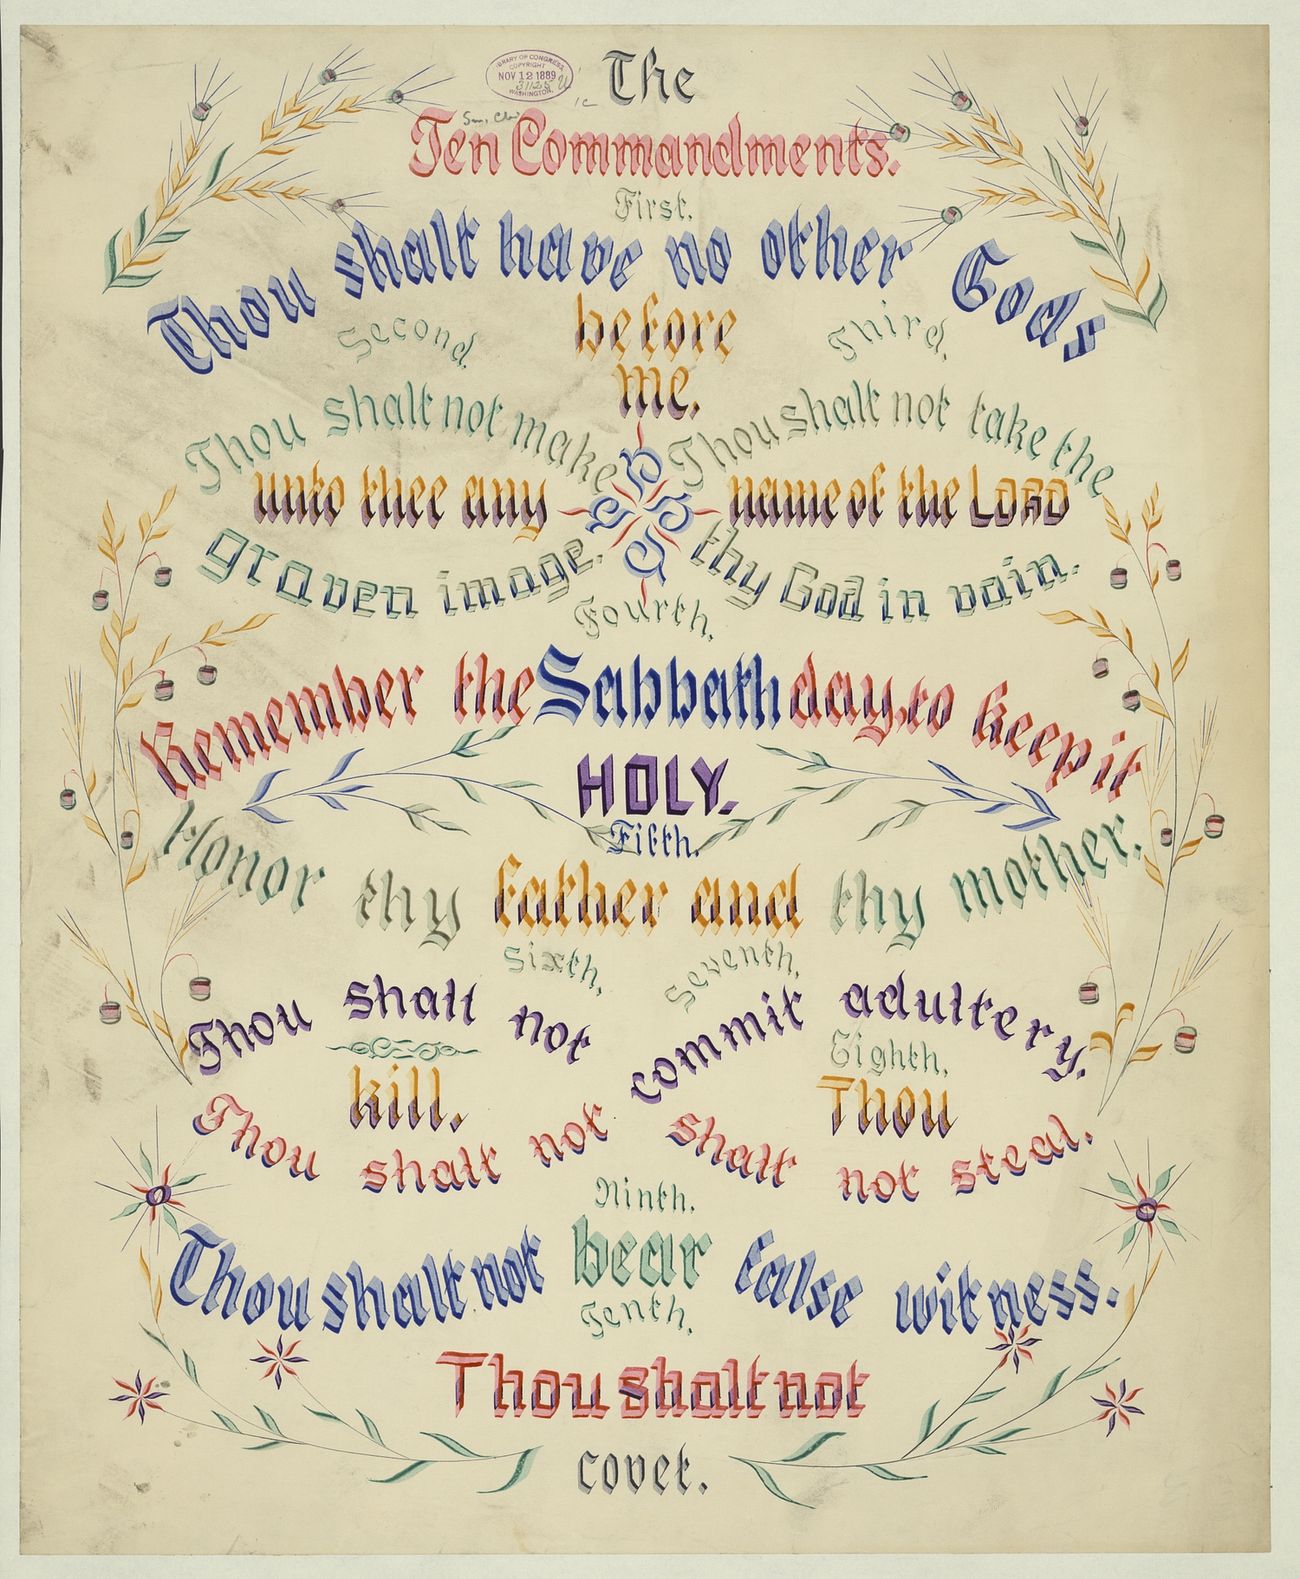 LIBRARY OF CONGRESS
COPYRIGHT
NOV 12 1889
WASHINGTON.
The
Ten Commandments.
First.
Thou shalt have no other Gods
before
me.
Second.
Thou shalt not make
unto thee any
graven image.
Third.
Thou shalt not take the
name of the LORD
thy God in vain.
Fourth.
Remember the Sabbath day, to keep it
HOLY.
Fifth.
Honor thy father and thy mother.
Sixth.
Thou shalt not
kill.
Seventh.
Thou shalt not commit adultery.
Eighth.
Thou
shalt not steal.
Ninth.
Thou shalt not bear false witness.
Tenth.
Thou shalt not
covet.